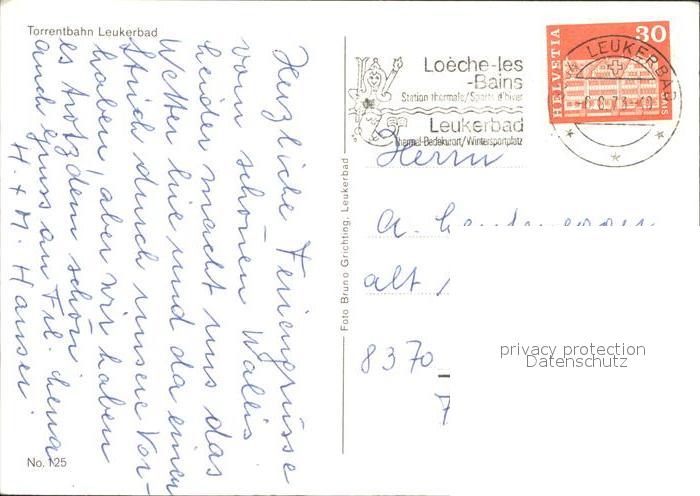 Torrentbahn Leukerbad
Herzliche Feriengrüsse
vom schönen Wallis
leider macht uns das
Wetter hie und da einen
Strich durch unsere Vor-
haben, aber wir haben
es trotzdem schön
auch gruss an Frl. Lena
H. + M. Hauser.
No. 125
Foto Bruno Grichting, Leukerbad
Loèche-les
-Bains
Station thermale/Sports d'hiver
Leukerbad
Thermal-Badekurort/Wintersportplatz
HELVETIA
30
LEUKERBAD
Herrn
A.
alt
8370
privacy protection
Datenschutz